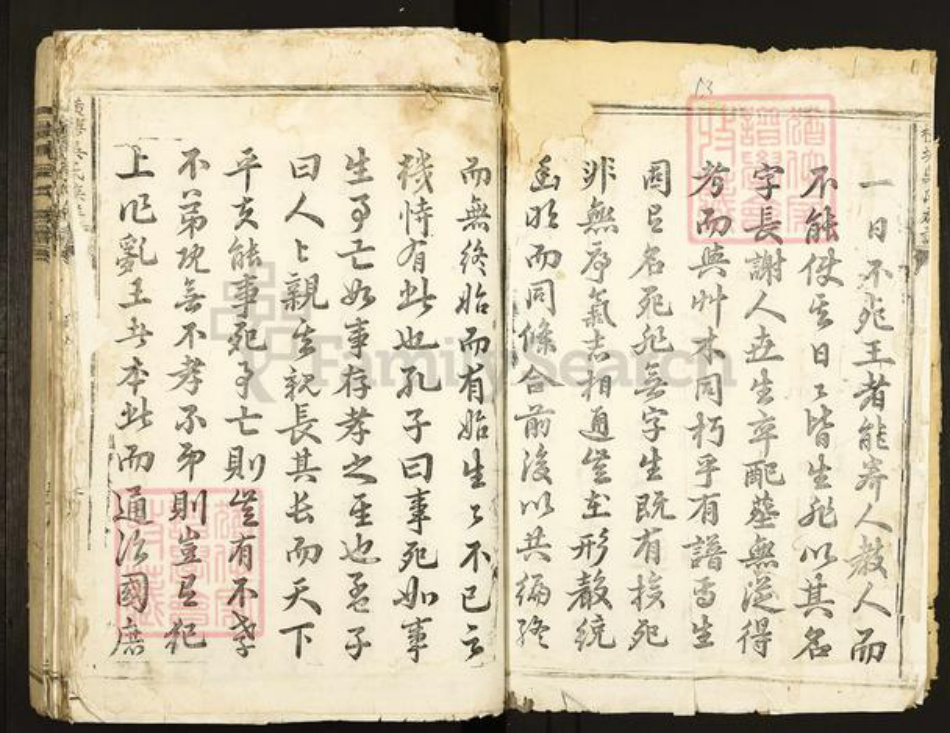 一日不死王者能奔人教人而
不能使之日〻皆生非以其名
字長謝人世生卒配墓無從得
考而與艸木同朽乎有譜焉生
固足名死非無字生既有接死
非無序氣志相通豈在形骸統
幽明而同條合前後以共編終
而無終始而有始生〻不已之
機恃有此也孔子曰事死如事
生事亡如事存孝之至也孟子
曰人〻親其親長其長而天下
平夫能事死事亡則豈有不孝
不弟既無不孝不弟則豈足犯
上作亂王者本此而通治國庶
FamilySearch
13